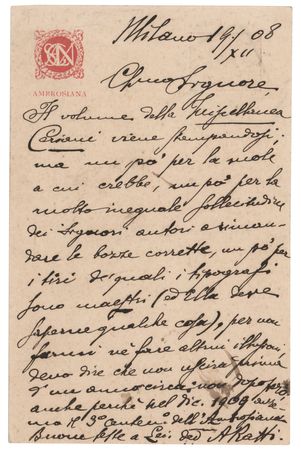 AMBROSIANA
Milano 19/XII 08
Chmo Signore
Il volume della Miscellanea
Ceriani viene stampandosi,
ma un pò per la mole
a cui crebbe, un pò per la
molto ineguale sollecitudine
dei Signori autori a riman-
dare le bozze corrette, un pò per
i tiri dei quali i tipografi
sono maestri (ed Ella deve
saperne qualche cosa), per non
farmi nè fare altrui illusioni
devo dire che non uscirà prima
d'un anno circa:
anche perchè nel dic. 1909 avre-
mo il 3º centen. dell'Ambrosiana
Buone feste a Lei. ded. ARatti